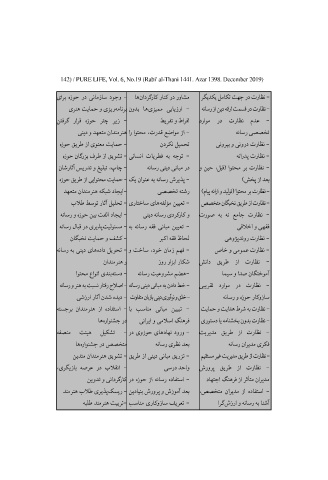 142) / PURE LIFE, Vol. 6, No.19 (Rabi' al-Thani 1441. Azar 1398. December 2019)
- نظارت در جهت تکامل یکدیگر
- نظارت در قسمت ارائه دین از رسانه
- عدم نظارت در موارد تخصصی رسانه
- نظارت درونی و بیرونی
- نظارت پدرانه
- نظارت بر محتوا (قبل، حین و بعد از پخش)
- نظارت بر محتوا (تولید و ارائه پیام)
- نظارت از طریق نخبگان متخصص
- نظارت جامع نه به صورت فقهی و اخلاقی
- نظارت روندپژوهی
- نظارت عمومی و خاص
- نظارت از طریق دانش آموختگان صدا و سیما
- نظارت در موارد تقریبی سازوکار حوزه و رسانه
- نظارت به شرط هدایت و حمایت
- نظارت بدون بخشنامه یا دستوری
- نظارت از طریق مدیریت فکری مدیران رسانه
- نظارت از طریق مدیریت غیر مستقیم
- نظارت از طریق پرورش مدیران متأثر از فرهنگ اجتهاد
- استفاده از مدیران متخصص، آشنا به رسانه و ارزش‌گرا
مشاور در کنار کارگردان‌ها
- ارزیابی ممیزی‌ها بدون افراط و تفریط
- از مواضع قدرت، محتوا را تحمیل نکردن
- توجه به فطریات انسانی در مبانی دینی رسانه
- پذیرش رسانه به عنوان یک رشته تخصصی
- تعیین مؤلفه‌های ساختاری و کارکردی رسانه دینی
- تعیین مبانی فقه رسانه به لحاظ فقه اکبر
- فهم زمان خود، ساخت و شکار ابزار روز
- هضم مشروعیت رسانه
- خط دادن به مبانی دینی رسانه
- خلق و نوآوری دینی با زبان متفاوت
- تبیین مبانی مناسب با فرهنگ اسلامی و ایرانی
- ورود نهادهای حوزوی در بعد نظری رسانه
- تزریق مبانی دینی از طریق واحد درسی
- استفاده رسانه از حوزه در بعد آموزش و پرورش بنیادین
- تعریف سازوکاری مناسب
- وجود سازمانی در حوزه برای برنامه‌ریزی و حمایت هنری
- زیر چتر حوزه قرار گرفتن هنرمندان متعهد و دینی
- حمایت معنوی از طریق حوزه
- تشویق از طرف بزرگان حوزه
- چاپ، تبلیغ و تدریس آثارشان
- حمایت محتوایی از طریق حوزه
- ایجاد شبکه هنرمندان متعهد
- تحلیل آثار توسط طلاب
- ایجاد الفت بین حوزه و رسانه
- مسئولیت‌پذیری در قبال رسانه
- کشف و حمایت نخبگان
- تحویل داده‌های دینی به رسانه و هنرمندان
- دسته‌بندی انواع محتوا
- اصلاح رفتار نسبت به هنر و رسانه
- دیده شدن آثار ارزشی
- استفاده از هنرمندان برجسته در جشنواره‌ها
- تشکیل هیئت منصفه متخصص در جشنواره‌ها
- تشویق هنرمندان متدین
- انقلاب در عرصه بازیگری، کارگردانی و تدوین
- ریسک‌پذیری طلاب هنرمند
- تربیت هنرمند طلبه